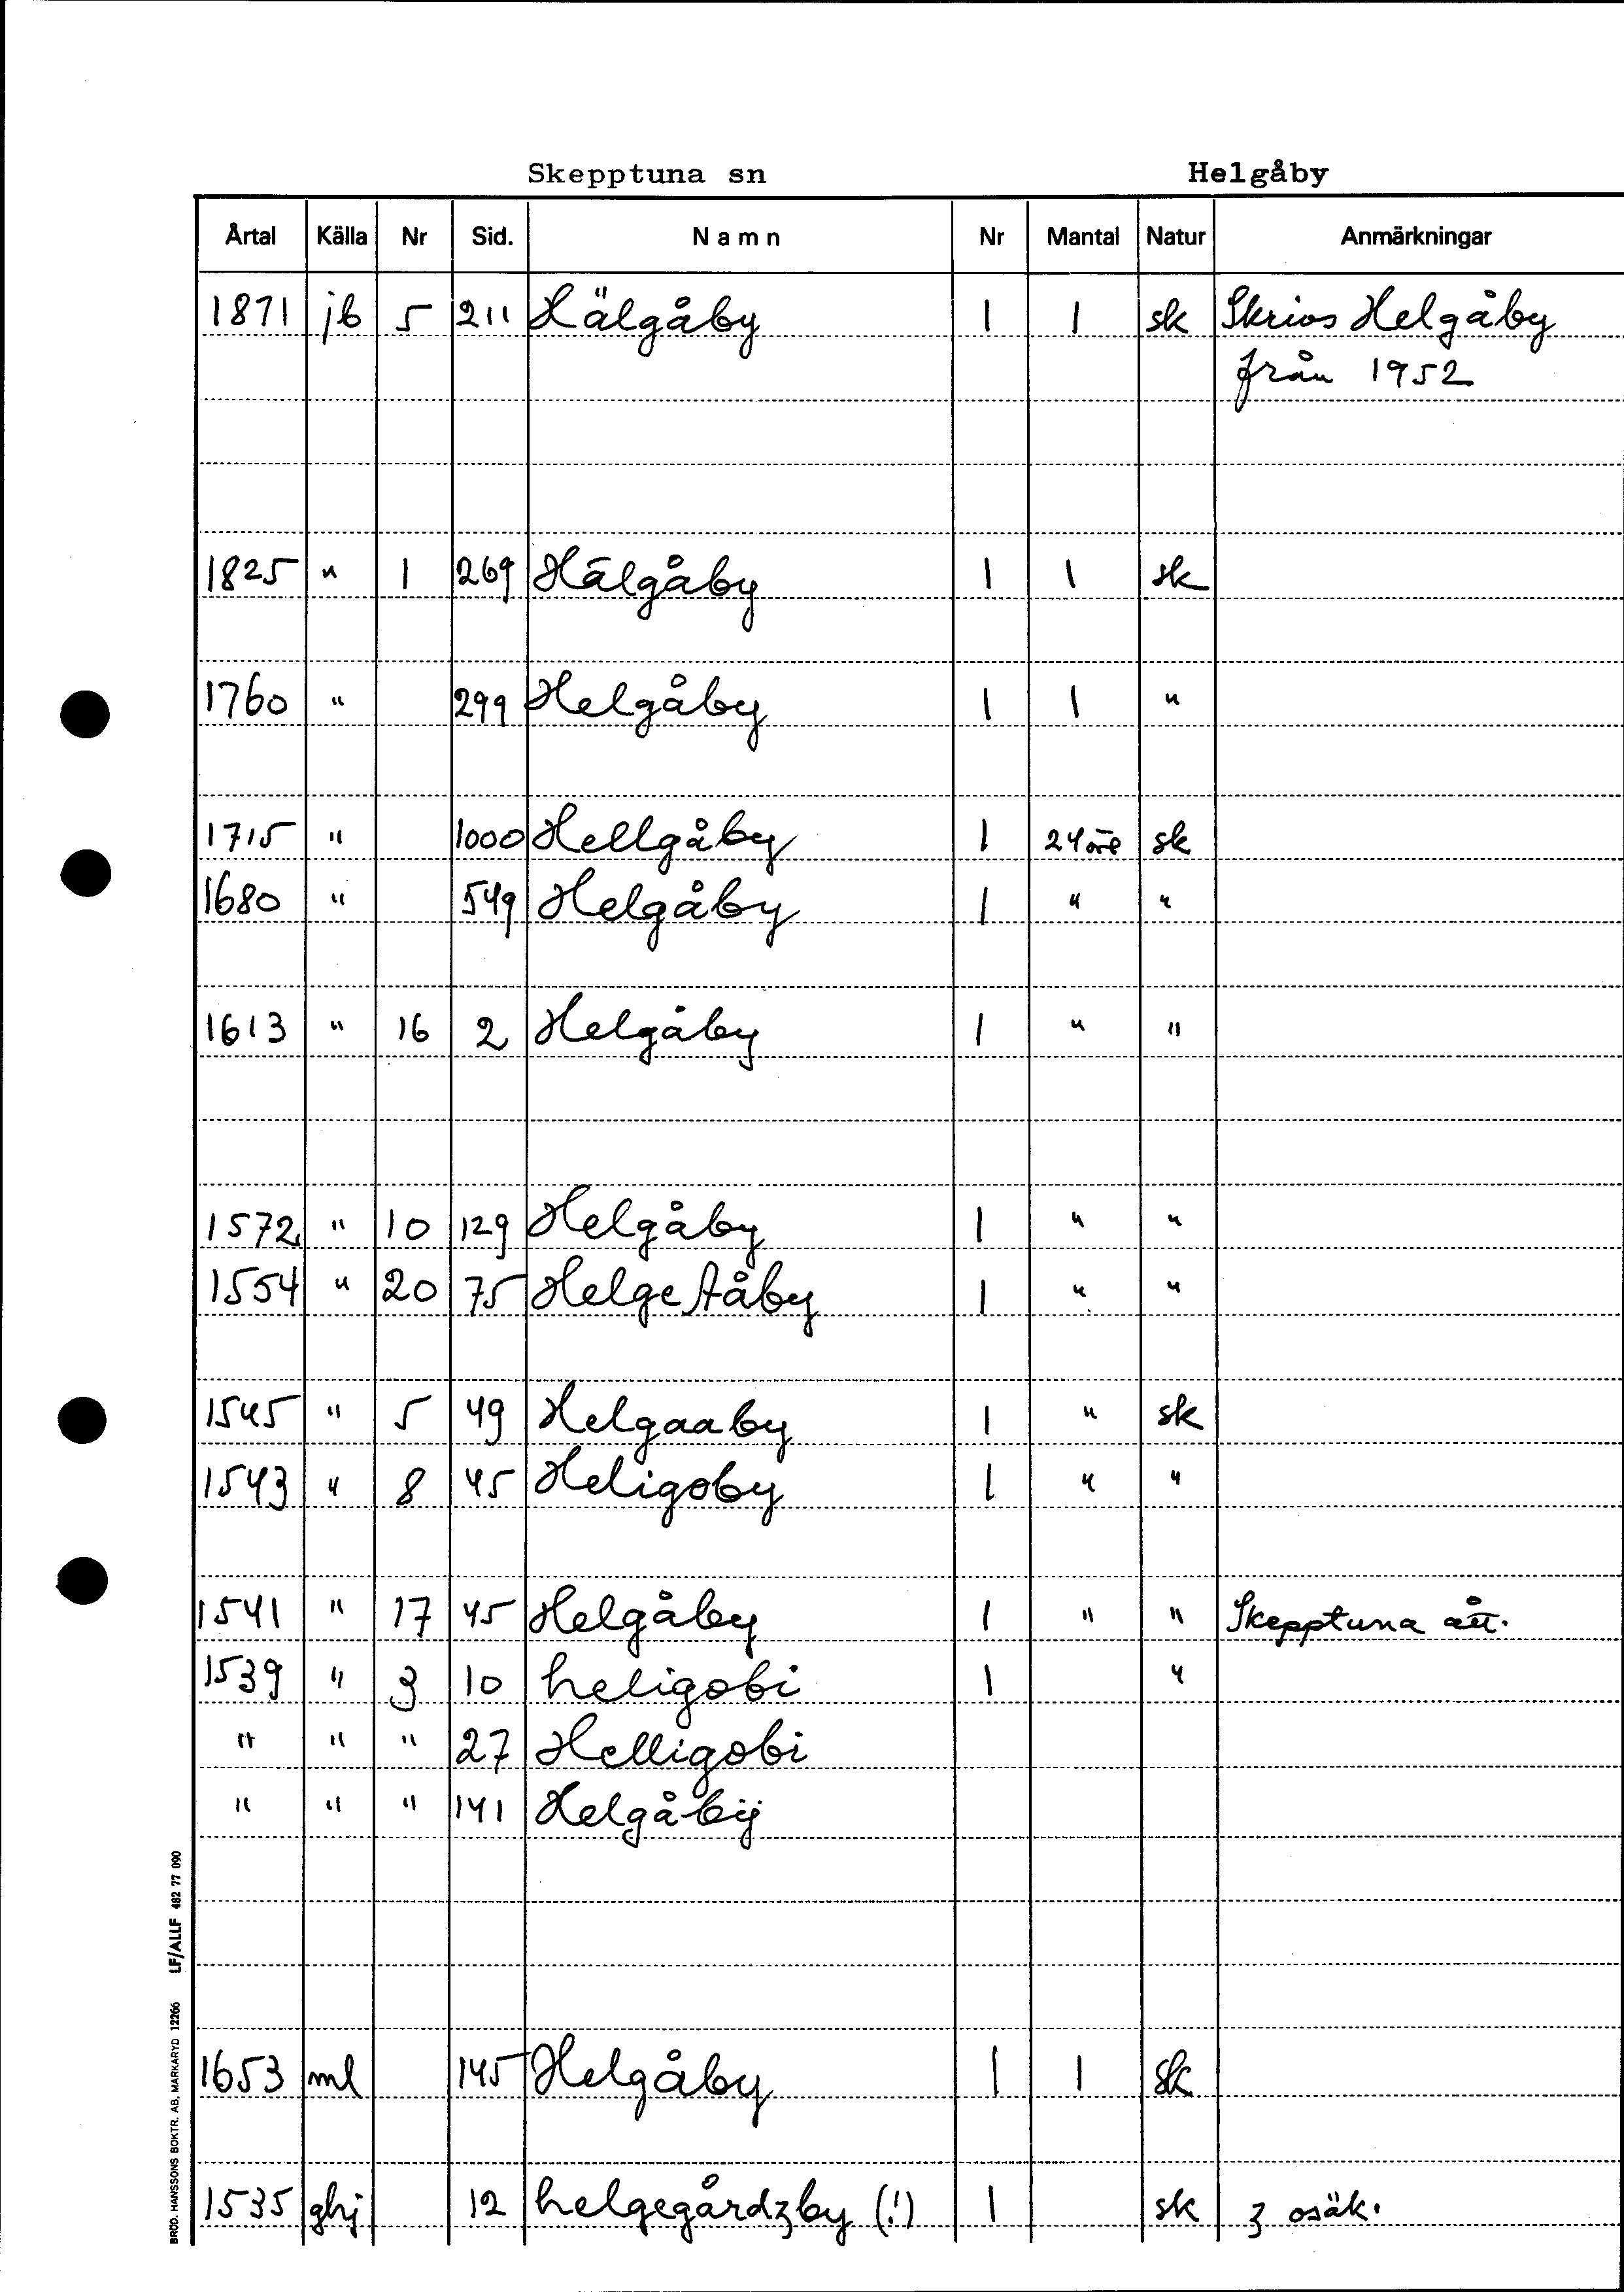 Skepptuna sn Helgåby
Årtal Källa Nr Sid. Namn Nr Mantal Natur Anmärkningar
1871 jb 5 211 Hälgåby 1 1 sk Skrivs Helgåby
från 1952
1825 " 1 269 Hälgåby 1 1 sk
1760 " 299 Helgåby 1 1 "
1715 " 1000 Hellgåby 1 24 öre sk
1680 " 549 Helgåby 1 " "
1613 " 16 2 Helgåby 1 " "
1572 " 10 129 Helgåby 1 " "
1554 " 20 75 Helge Aåby 1 " "
1545 " 5 49 Helgaaby 1 " sk
1543 " 8 45 Heligoby 1 " "
1541 " 17 45 Helgåby 1 " " Skepptuna ått.
1539 " 3 10 heligobi 1 "
" " " 27 Helligobi
" " " 141 Helgåbÿ
1653 ml 145 Helgåby 1 1 sk
1535 ghj 12 helgegårdzby (!) 1 sk z osäk.
BRÖD. HANSSONS BOKTR. AB. MARKARYD 12266 LF/ALLF 482 77 090